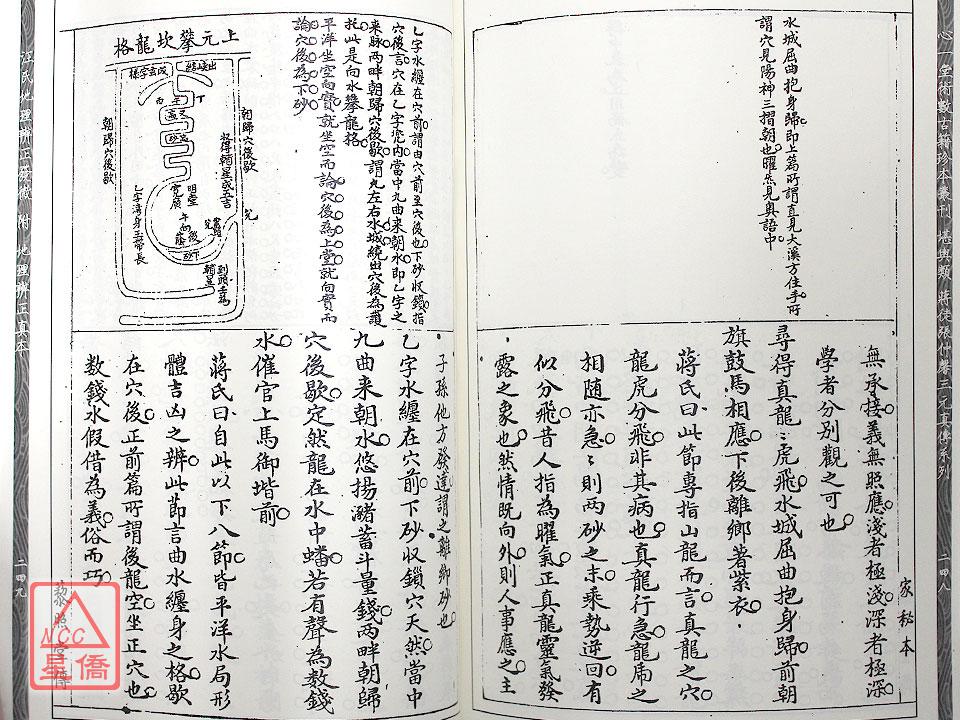 心一堂術數古籍珍本叢刊 堪輿類 蔣徒張仲馨三元真傳系列
二四八
水城屈曲抱身歸即上篇所謂直見大溪方住手所
謂穴見陽神三摺朝也曜怎見奧語中
無承接義無照應淺者極淺深者極深
學者分別觀之可也
尋得真龍龍虎飛水城屈曲抱身歸前朝
旗鼓馬相應下後離鄉著紫衣
蔣氏曰此節專指山龍而言真龍之穴
龍虎分飛非其病也真龍行急龍虎之
相隨亦急急則兩砂之末乘勢逆回有
似分飛昔人指為曜氣正真龍靈氣發
露之象也然情既向外則人事應之主
家秘本
乙字水纏在穴前謂由穴前至穴後也下砂收鎖指
穴後言穴在乙字兜內當中九曲來朝水即乙字之
來脉兩畔朝歸穴後歇謂凡左右水城繞出穴後為護
托此是向水攀龍格
平洋坐空向實就坐空而論穴後為上堂就向實而
論穴後為下砂
上元攀坎龍格
朝歸穴後歇
收得輔星成五吉
明堂寬廣
乙字灣身玉帶長
到頭
輔星
朝歸穴後歇
子孫他方發達謂之離鄉砂也
乙字水纏在穴前下砂收鎖穴天然當中
九曲來朝水悠揚瀦蓄斗量錢兩畔朝歸
穴後歇定然龍在水中蟠若有聲為數錢
水催官上馬御堦前
蔣氏曰自此以下八節皆平洋水局形
體吉凶之辨此節言曲水纏身之格歇
在穴後正前篇所謂後龍空坐正穴也
數錢水假借為義俗而巧
二四九
藜照堂傳
NCC
星僑